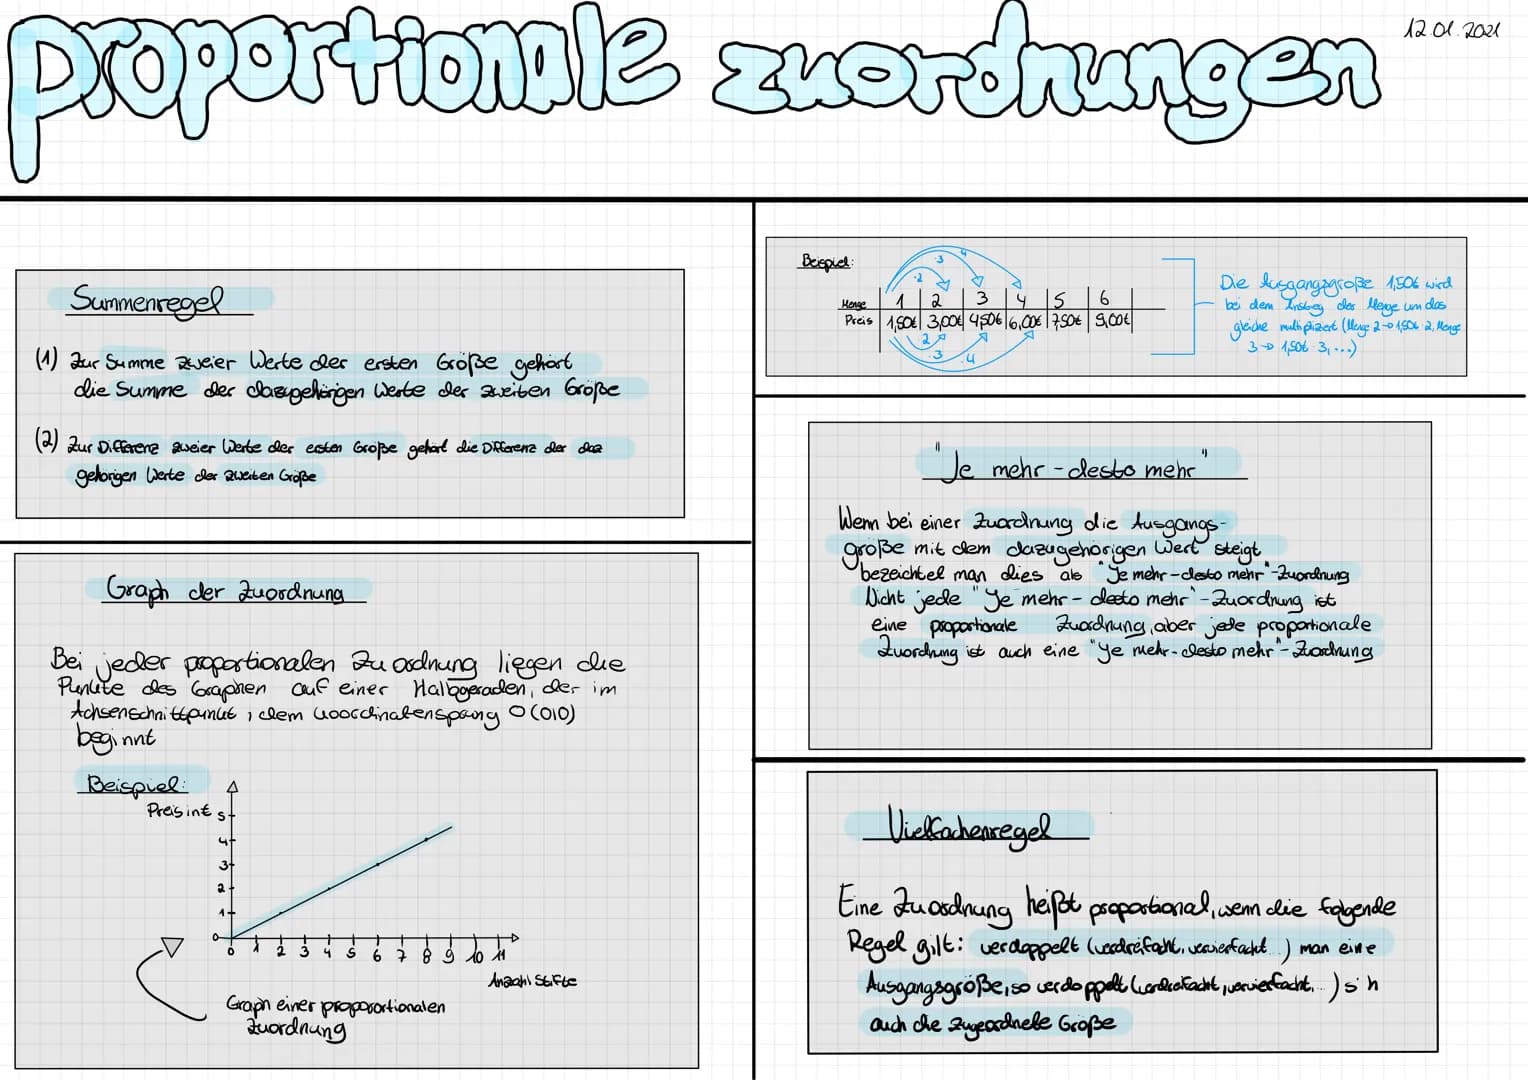 proportionale zuordnungen
12.01.2021
Summenregel
(1) Zur Summe zweier Werte der ersten Größe gehört
die Summe der dazugehörigen Werte der zweiten Größe
(2) Zur Differenz zweier Werte der ersten Größe gehört die Differenz der daz
gehörigen Werte der zweiten Größe
Graph der Zuordnung
Bei jeder proportionalen Zuordnung liegen die
Punkte des Graphen auf einer Halbgeraden, der im
Achsenschnittpunkt, dem Koordinatensprung O(0|0)
beginnt
Beispiel:
Preis in €
5
4
3
2
1
0
0 1 2 3 4 5 6 7 8 9 10 11
Anzahl Stifte
Graph einer proporortionalen
Zuordnung
Beispiel:
·2 ·3 ·4
Menge 1 2 3 4 5 6
Preis 1,50€ 3,00€ 4,50€ 6,00€ 7,50€ 9,00€
·2 ·3 ·4
Die Ausgangsgroße 1,50€ wird
bei dem Anstieg der Menge um das
gleiche multipliziert (Menge 2→1,50€·2, Menge
3→1,50€·3,...)
"Je mehr - desto mehr"
Wenn bei einer Zuordnung die Ausgangs-
größe mit dem dazugehörigen Wert steigt
bezeichtet man dies als "Je mehr-desto mehr"-Zuordnung
Nicht jede "Je mehr - desto mehr"-Zuordnung ist
eine proportionale Zuordnung, aber jede proportionale
Zuordnung ist auch eine "Je mehr-desto mehr"-Zuordnung
Vielfachenregel
Eine Zuordnung heißt proportional, wenn die folgende
Regel gilt: verdoppelt (verdreifacht, vervierfacht...) man eine
Ausgangsgröße, so verdoppelt (verdreifacht, vervierfacht,...) sich
auch die zugeordnete Größe